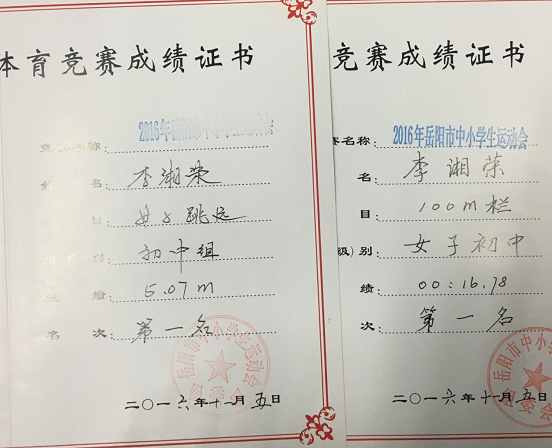 体育竞赛成绩证书
竞赛名称: 2016年岳阳市中小学生运动会
姓名: 李湘荣
项目: 女子跳远
组别: 初中组
成绩: 5.07m
名次: 第一名
二〇一六年十一月五日
竞赛成绩证书
赛名称: 2016年岳阳市中小学生运动会
名: 李湘荣
目: 100m栏
级)别: 女子初中
绩: 00:16.78
次: 第一名
岳阳市中小学
委会
二〇一六年十一月五日